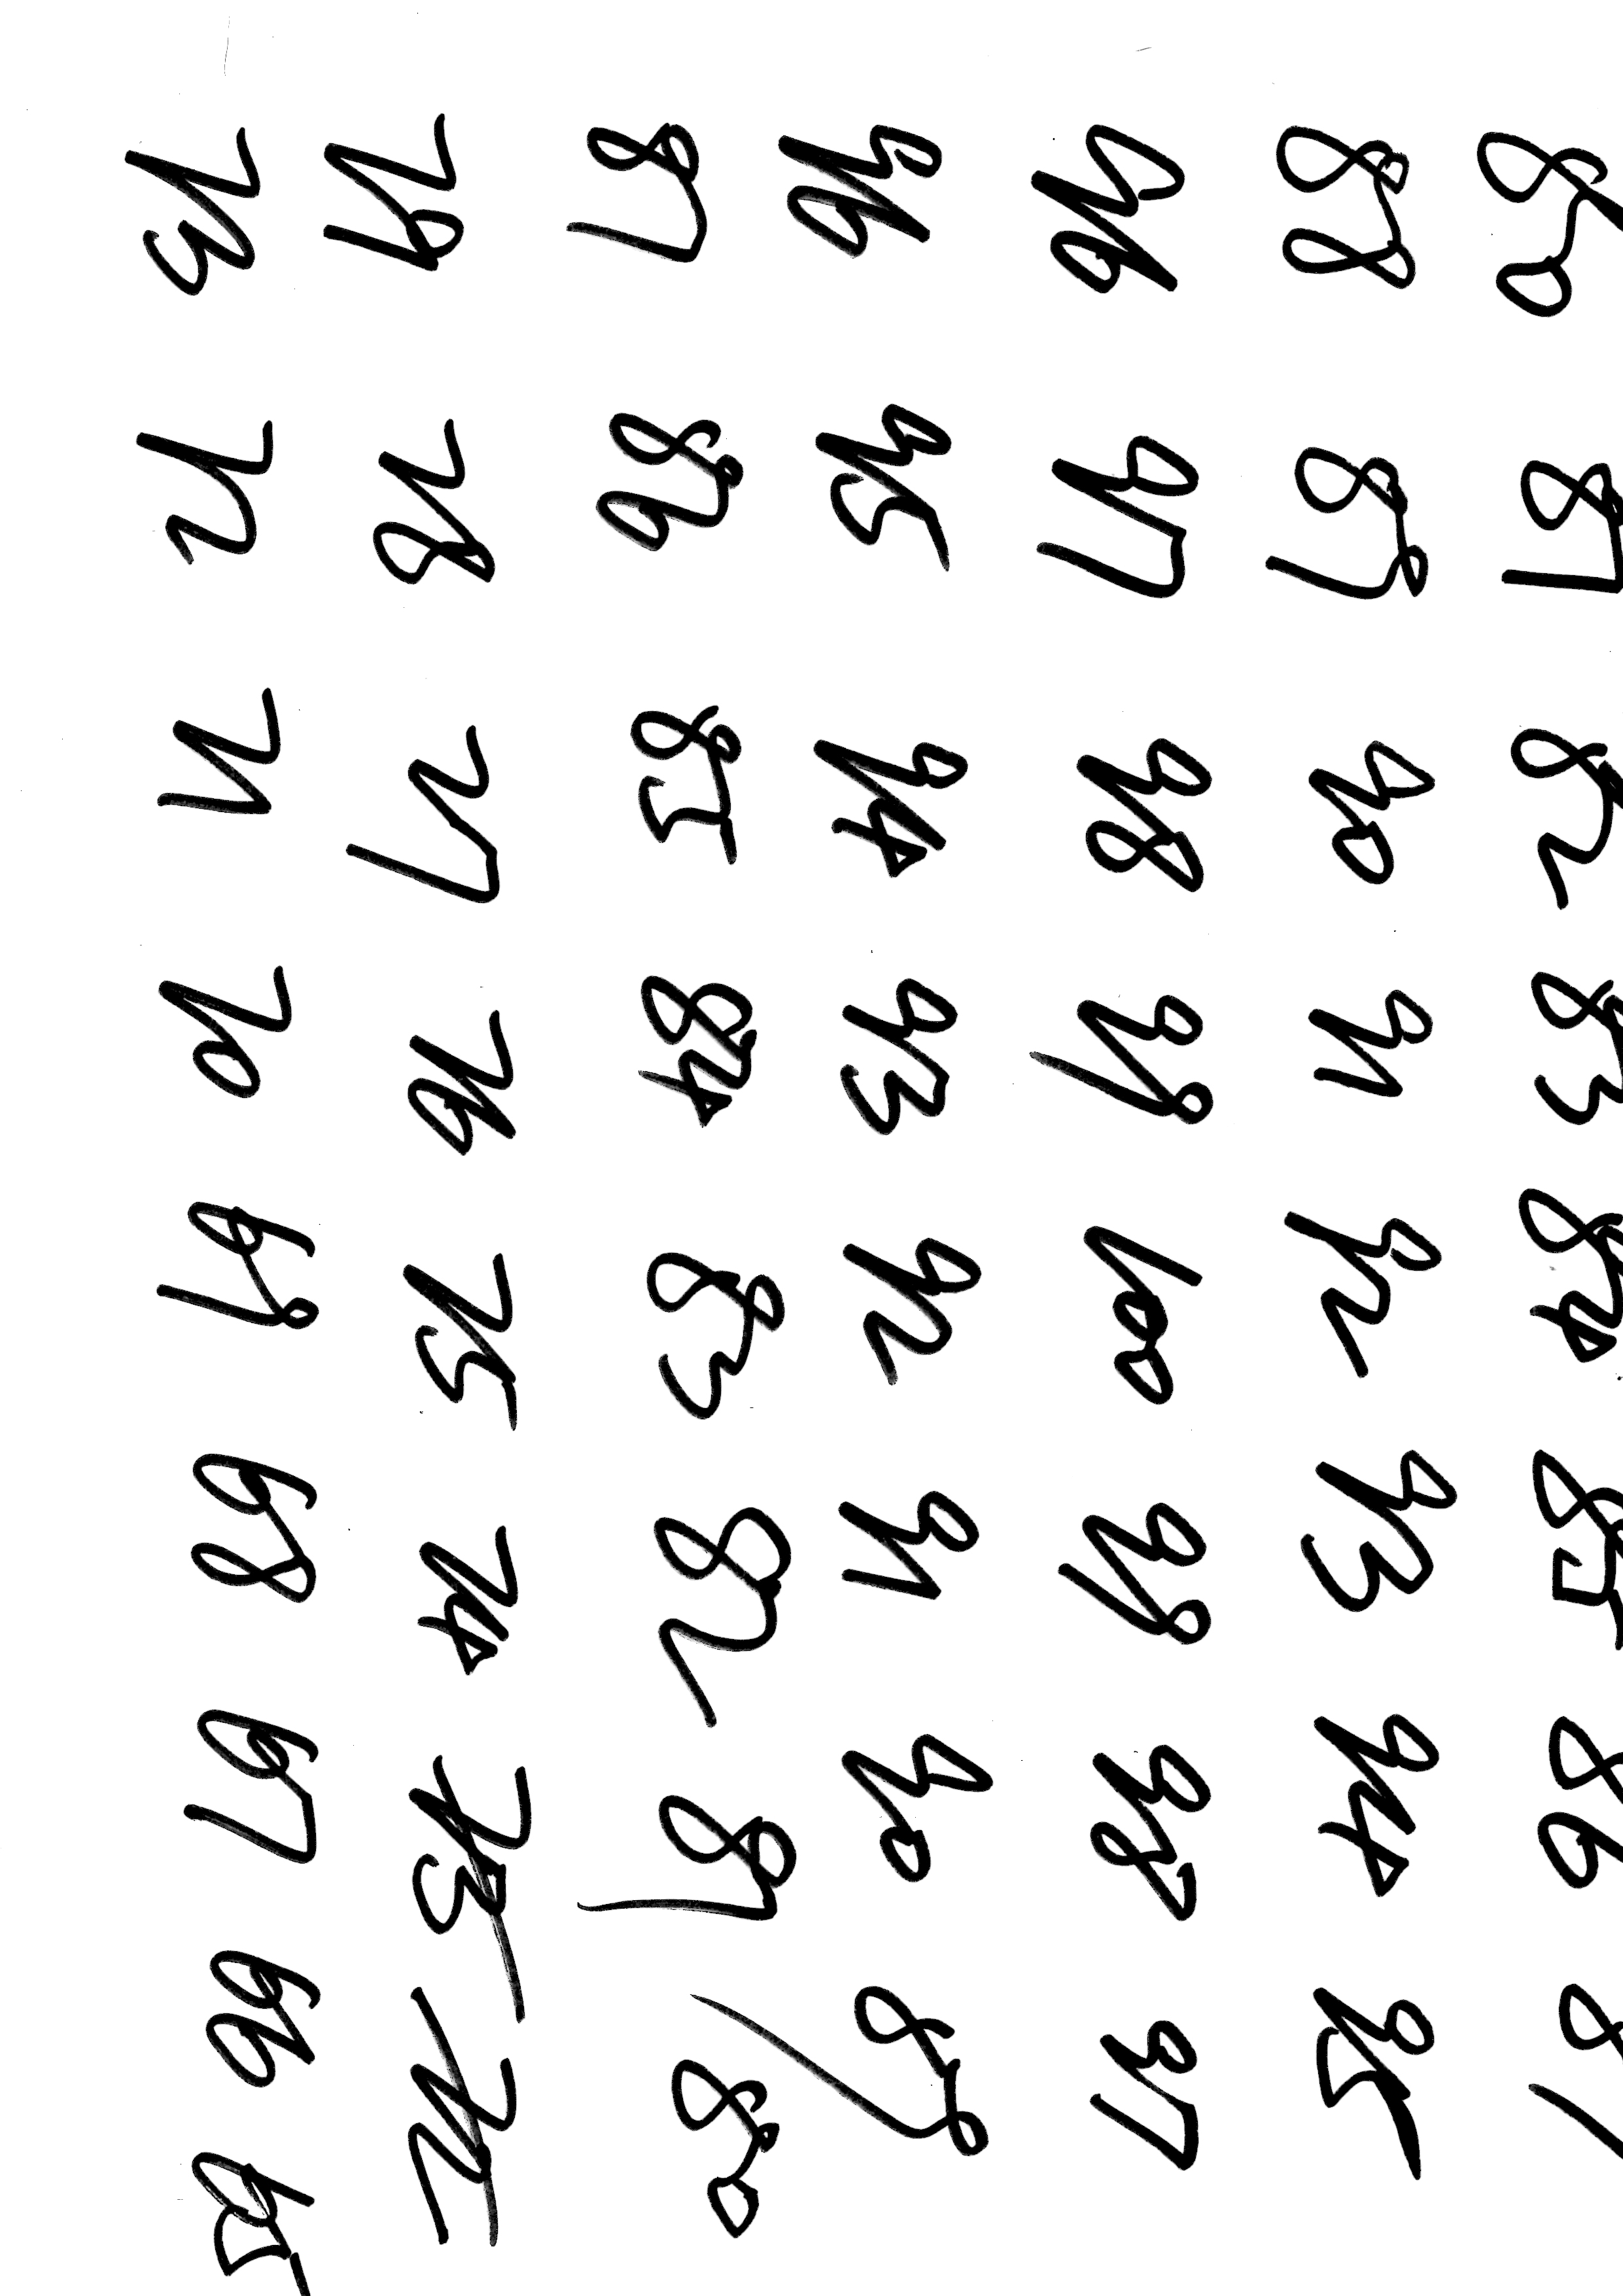 80 81 82 83 84 85 86 87
88 89 90 91 92 93 94 95
96 97 98 99 100 99 98 97
96 95 94 93 92 91 90 89
87 86 85 84 83 82 81 80
79 78 77 76 75 74 73 72
73 72 71 70 69 68 67 66 65